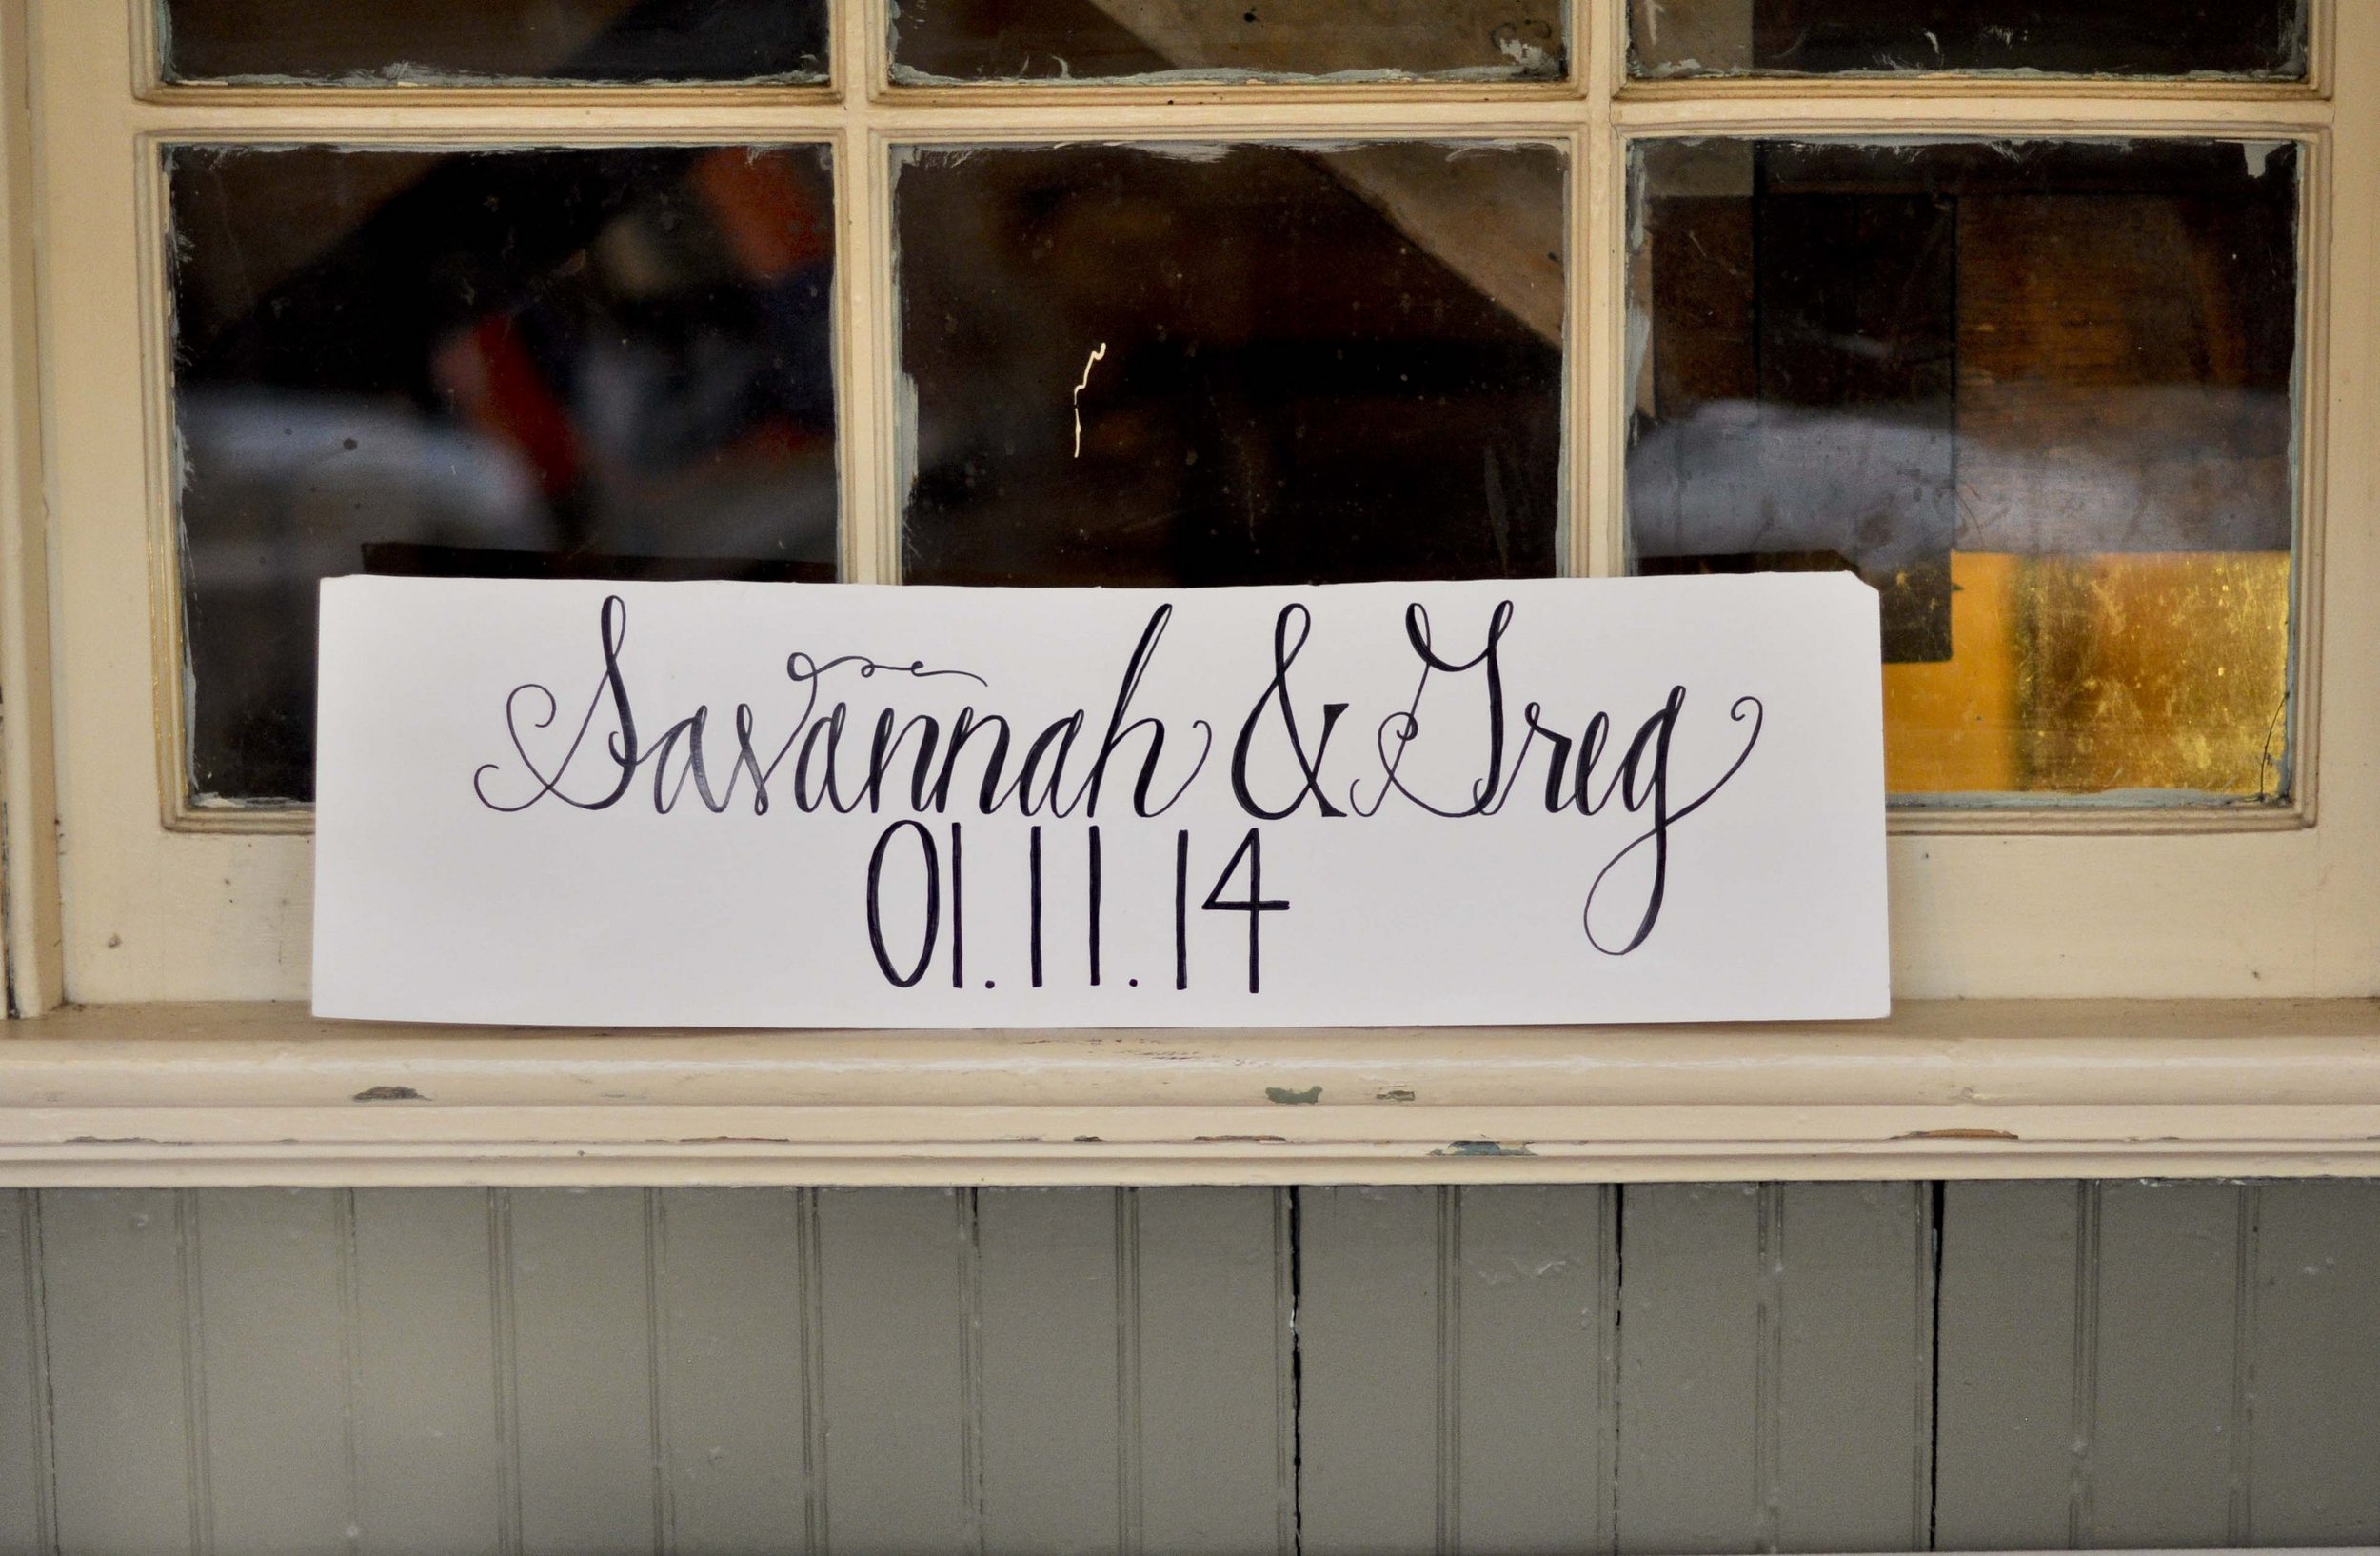 Savannah & Greg
01.11.14